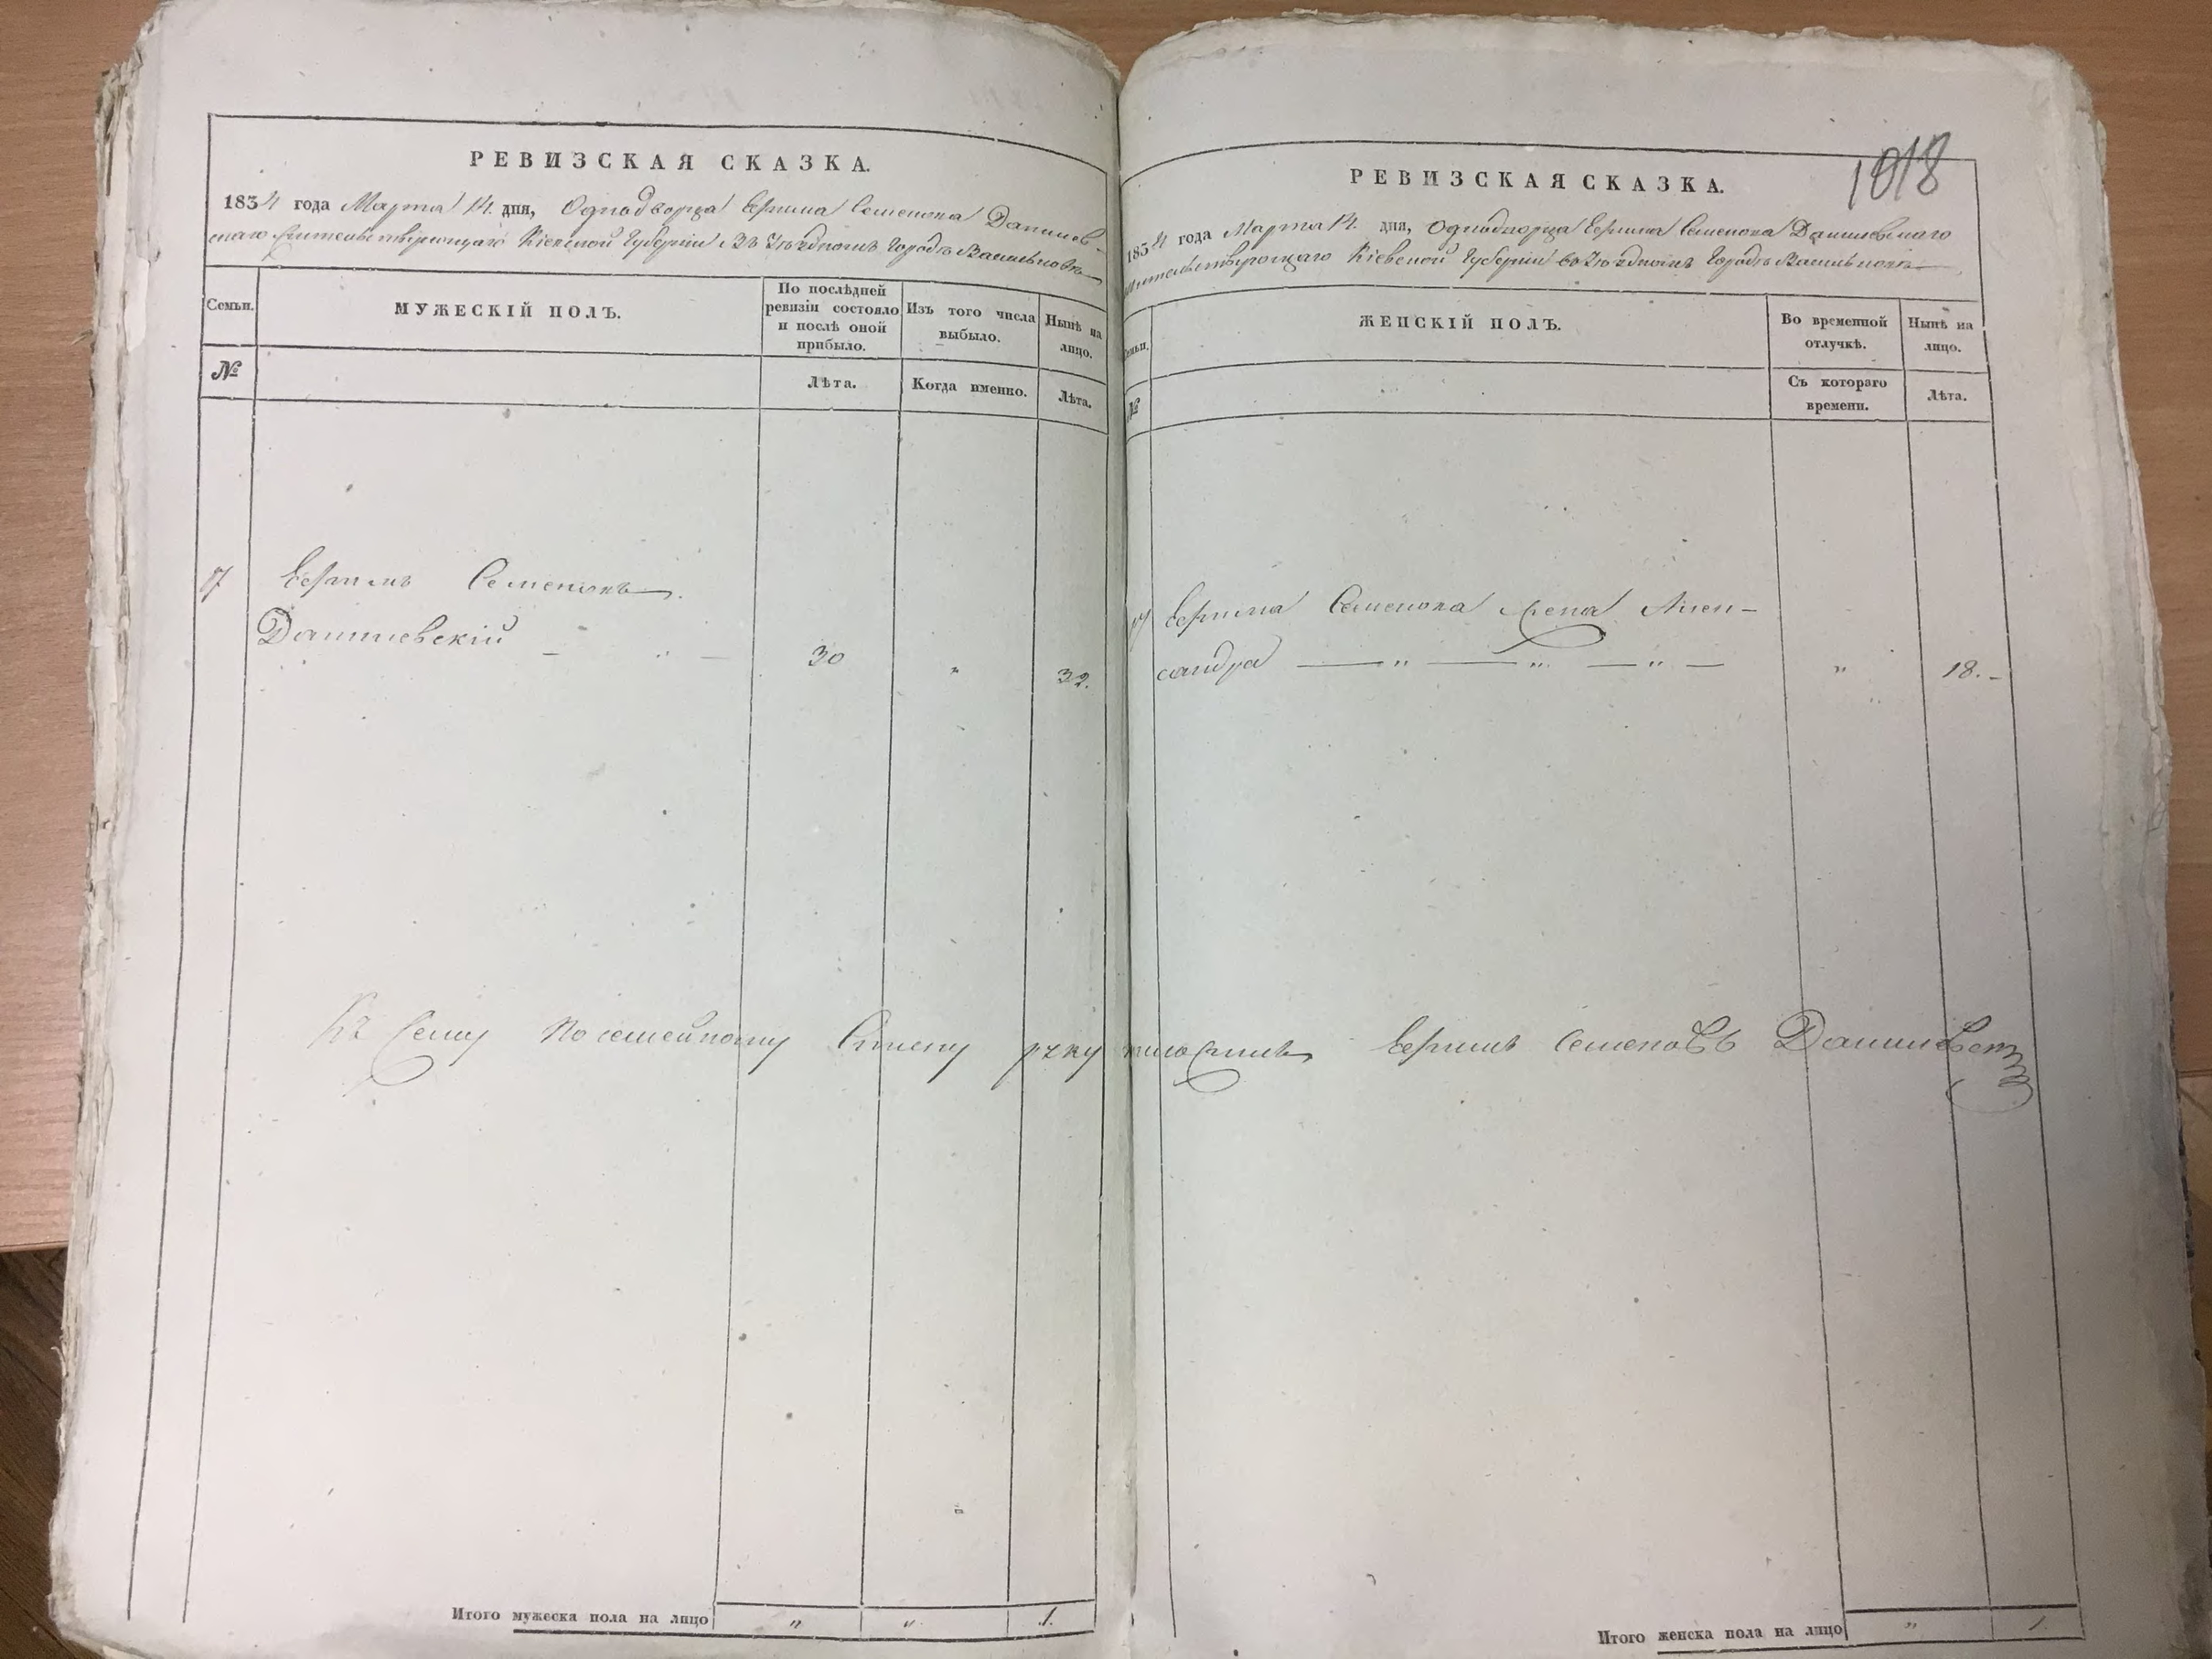 РЕВИЗСКАЯ СКАЗКА.
1834 года Марта 14. дня, Однодворца Ефима Семенова Данилев-
скаго жительствующаго Кіевской Губерніи Въ Уѣздномъ Городѣ Васильковѣ
Семьи.
МУЖЕСКІЙ ПОЛЪ.
По послѣдней
ревизіи состояло
и послѣ оной
прибыло.
Изъ того числа
выбыло.
Нынѣ на
лицо.
№
Лѣта.
Когда именно.
Лѣта.
Семеновъ.
Данилевскій - " - 30 " 32.
Къ Сему Посемейному Списку руку
Итого мужеска пола на лицо " " 1.
1018
РЕВИЗСКАЯ СКАЗКА.
1834 года Марта 14. дня, Однодворца Ефима Семенова Данилевскаго
жительствующаго Кіевской Губерніи во Уѣздномъ Городѣ Васильковѣ
Семьи.
ЖЕНСКІЙ ПОЛЪ.
Во временной
отлучкѣ.
Нынѣ на
лицо.
№
Съ котораго
времени.
Лѣта.
Семенова жена Алек-
сандра — " — " — " — " 18. -
приложилъ Семеновъ
Итого женска пола на лицо " 1.